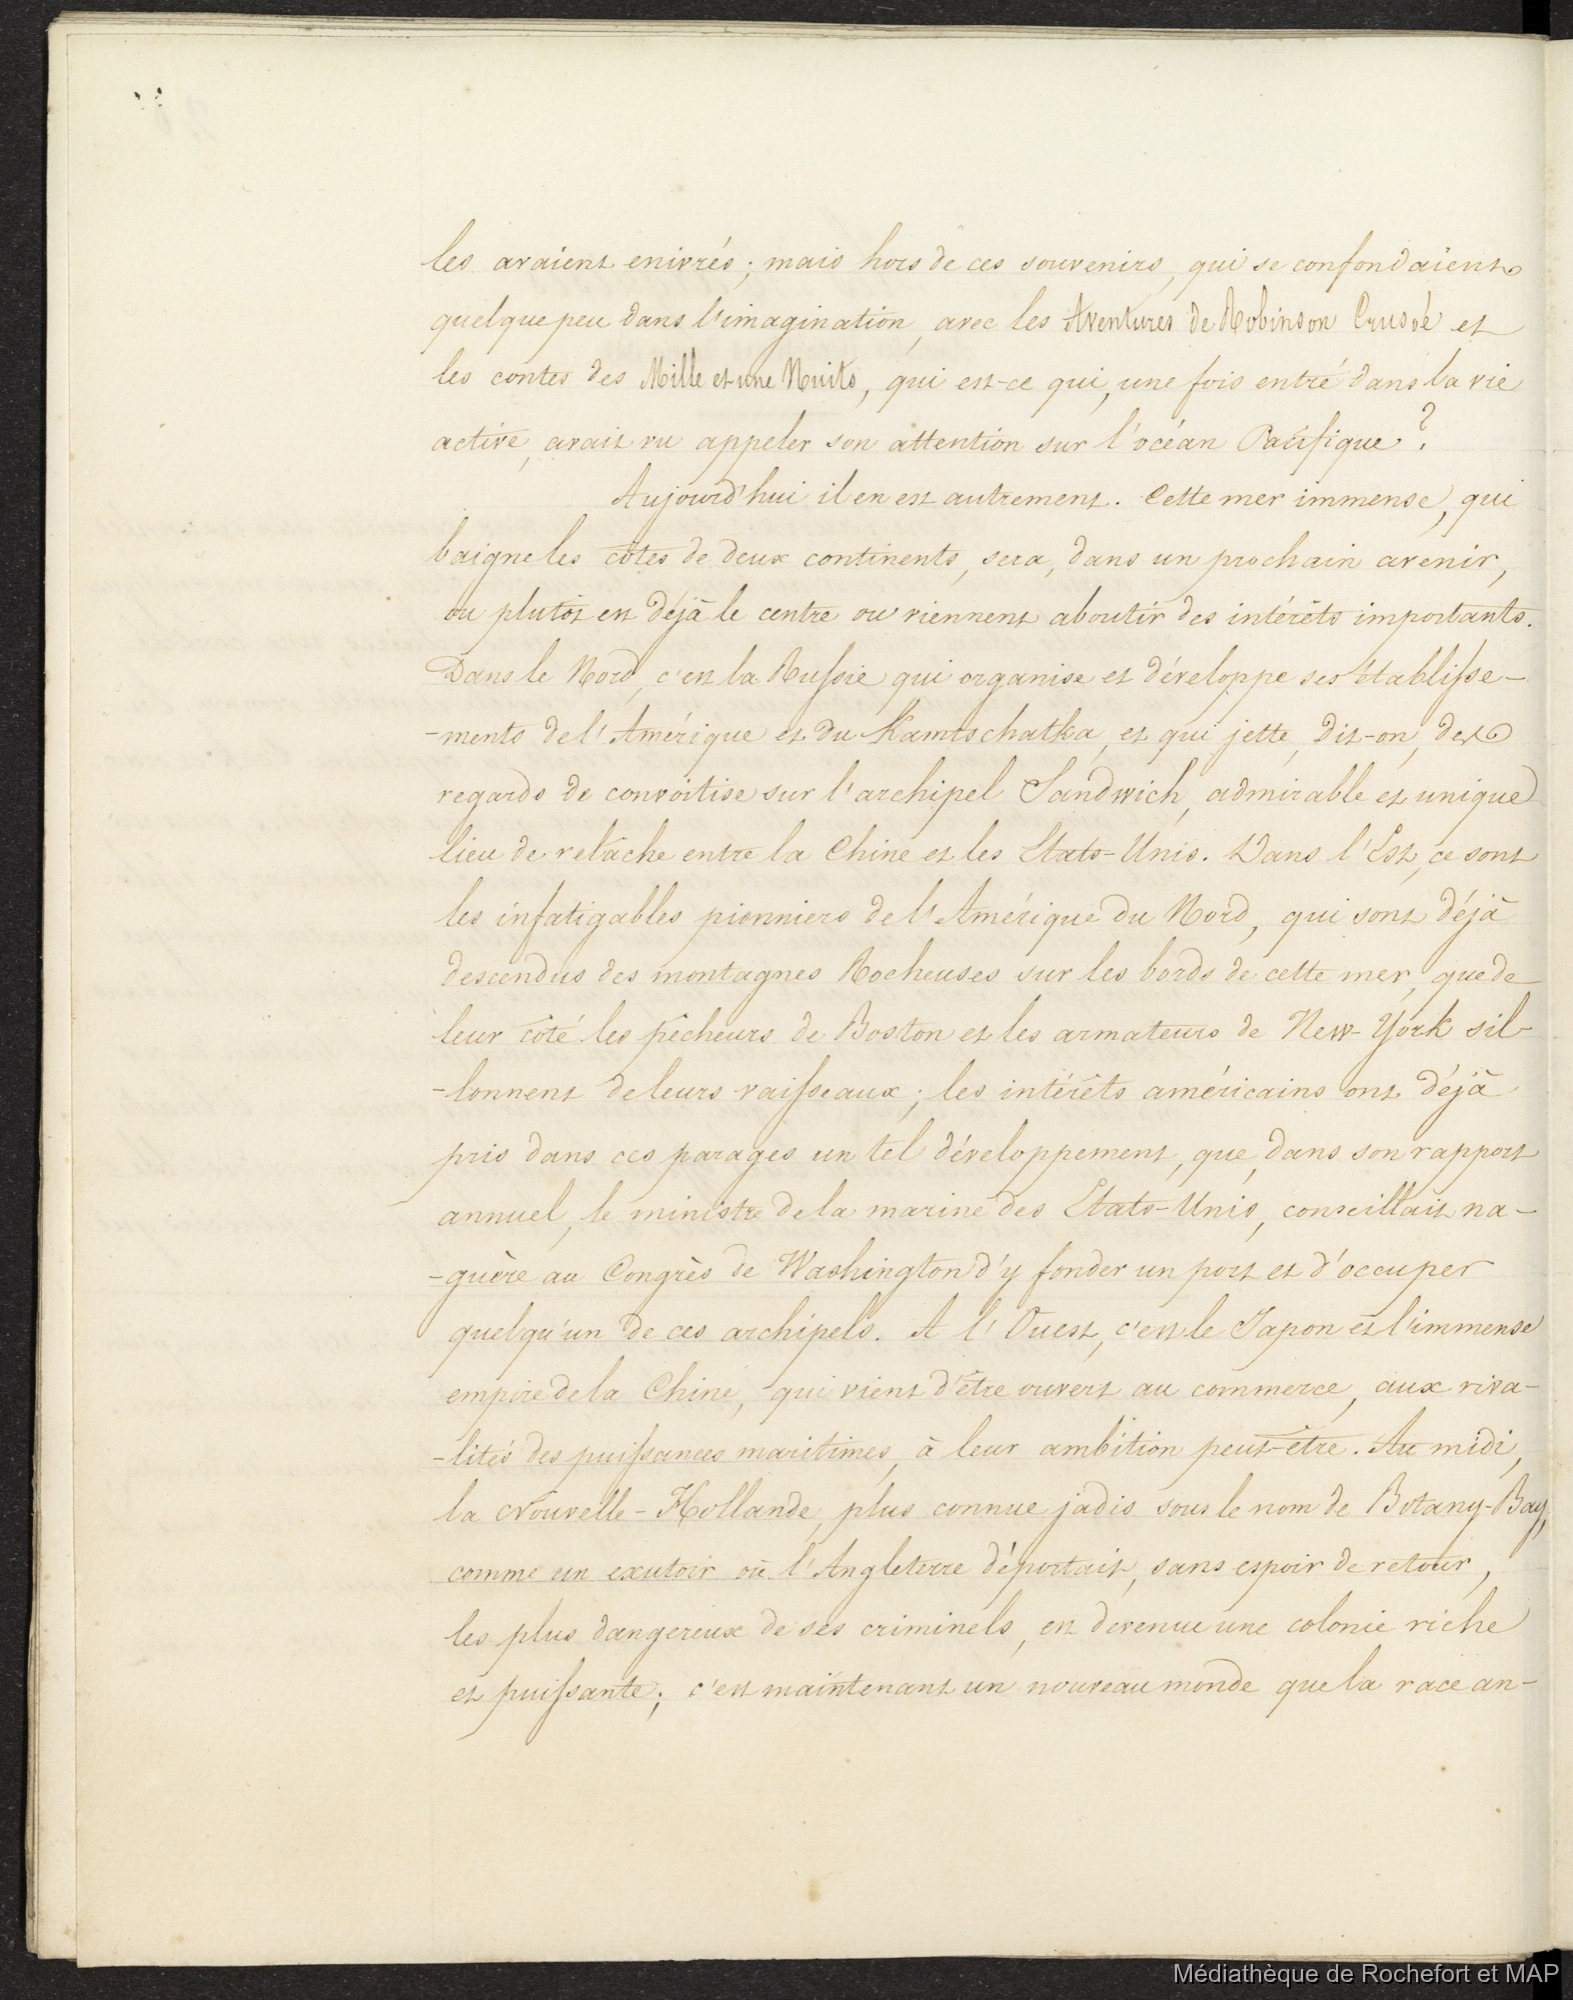 les avaient enivrés; mais hors de ces souvenirs, qui se confondaient
quelque peu dans l'imagination, avec les Aventures de Robinson Crusoé et
les contes des Mille et une Nuits, qui est-ce qui, une fois entré dans la vie
active, avait vu appeler son attention sur l'océan Pacifique?
Aujourd'hui il en est autrement. Cette mer immense, qui
baigne les côtes de deux continents, sera, dans un prochain avenir,
ou plutôt est déjà le centre où viennent aboutir des intérêts importants.
Dans le Nord, c'est la Russie qui organise et développe ses établisse-
-ments de l'Amérique et du Kamtschatka, et qui jette, dit-on, des
regards de convoitise sur l'archipel Sandwich, admirable et unique
lieu de relâche entre la Chine et les Etats-Unis. Dans l'Est, ce sont
les infatigables pionniers de l'Amérique du Nord, qui sont déjà
descendus des montagnes Rocheuses sur les bords de cette mer, que de
leur côté les pêcheurs de Boston et les armateurs de New-York sil-
-lonnent de leurs vaisseaux; les intérêts américains ont déjà
pris dans ces parages un tel développement, que, dans son rapport
annuel, le ministre de la marine des Etats-Unis, conseillait na-
-guère au Congrès de Washington d'y fonder un port et d'occuper
quelqu'un de ces archipels. A l'Ouest, c'est le Japon et l'immense
empire de la Chine, qui vient d'être ouvert au commerce, aux riva-
-lités des puissances maritimes, à leur ambition peut-être. Au midi,
la Nouvelle-Hollande, plus connue jadis sous le nom de Botany-Bay,
comme un exutoir où l'Angleterre déportait, sans espoir de retour,
les plus dangereux de ses criminels, est devenue une colonie riche
et puissante; c'est maintenant un nouveau monde que la race an-
Médiathèque de Rochefort et MAP